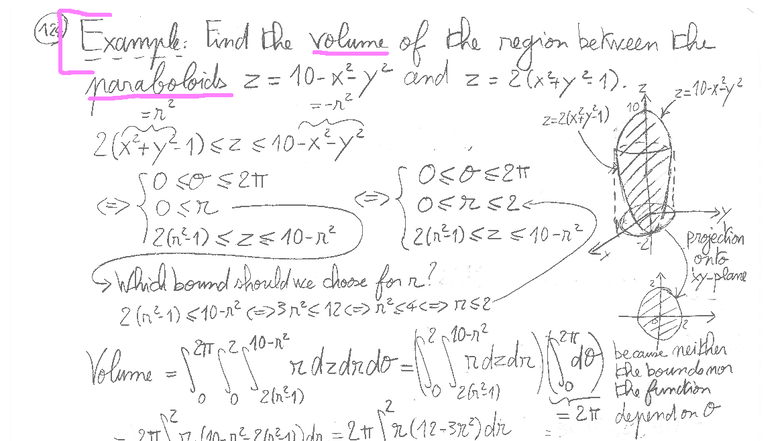 126
Example: Find the volume of the region between the
paraboloids z = 10-x²-y² and z = 2(x²+y²-1).
=r² =-r²
2(x²+y²-1) ≤ z ≤ 10-x²-y²
⟺ { 0 ≤ θ ≤ 2π
0 ≤ r
2(r²-1) ≤ z ≤ 10-r²
⟺ { 0 ≤ θ ≤ 2π
0 ≤ r ≤ 2
2(r²-1) ≤ z ≤ 10-r²
→ Which bound should we choose for r?
2(r²-1) ≤ 10-r² ⟺ 3r² ≤ 12 ⟺ r² ≤ 4 ⟺ r ≤ 2
z
10
z=10-x²-y²
z=2(x²+y²-1)
y
-2
x
projection
onto
xy-plane
2
2
Volume = ∫₀^2π ∫₀^2 ∫_2(r²-1)^10-r² r dz dr dθ = (∫₀^2 ∫_2(r²-1)^10-r² r dz dr) (∫₀^2π dθ)
= 2π
because neither
the bounds nor
the function
depend on θ
= 2π ∫^2 r (10-r²-2(r²-1)) dr = 2π ∫^2 r (12-3r²) dr =